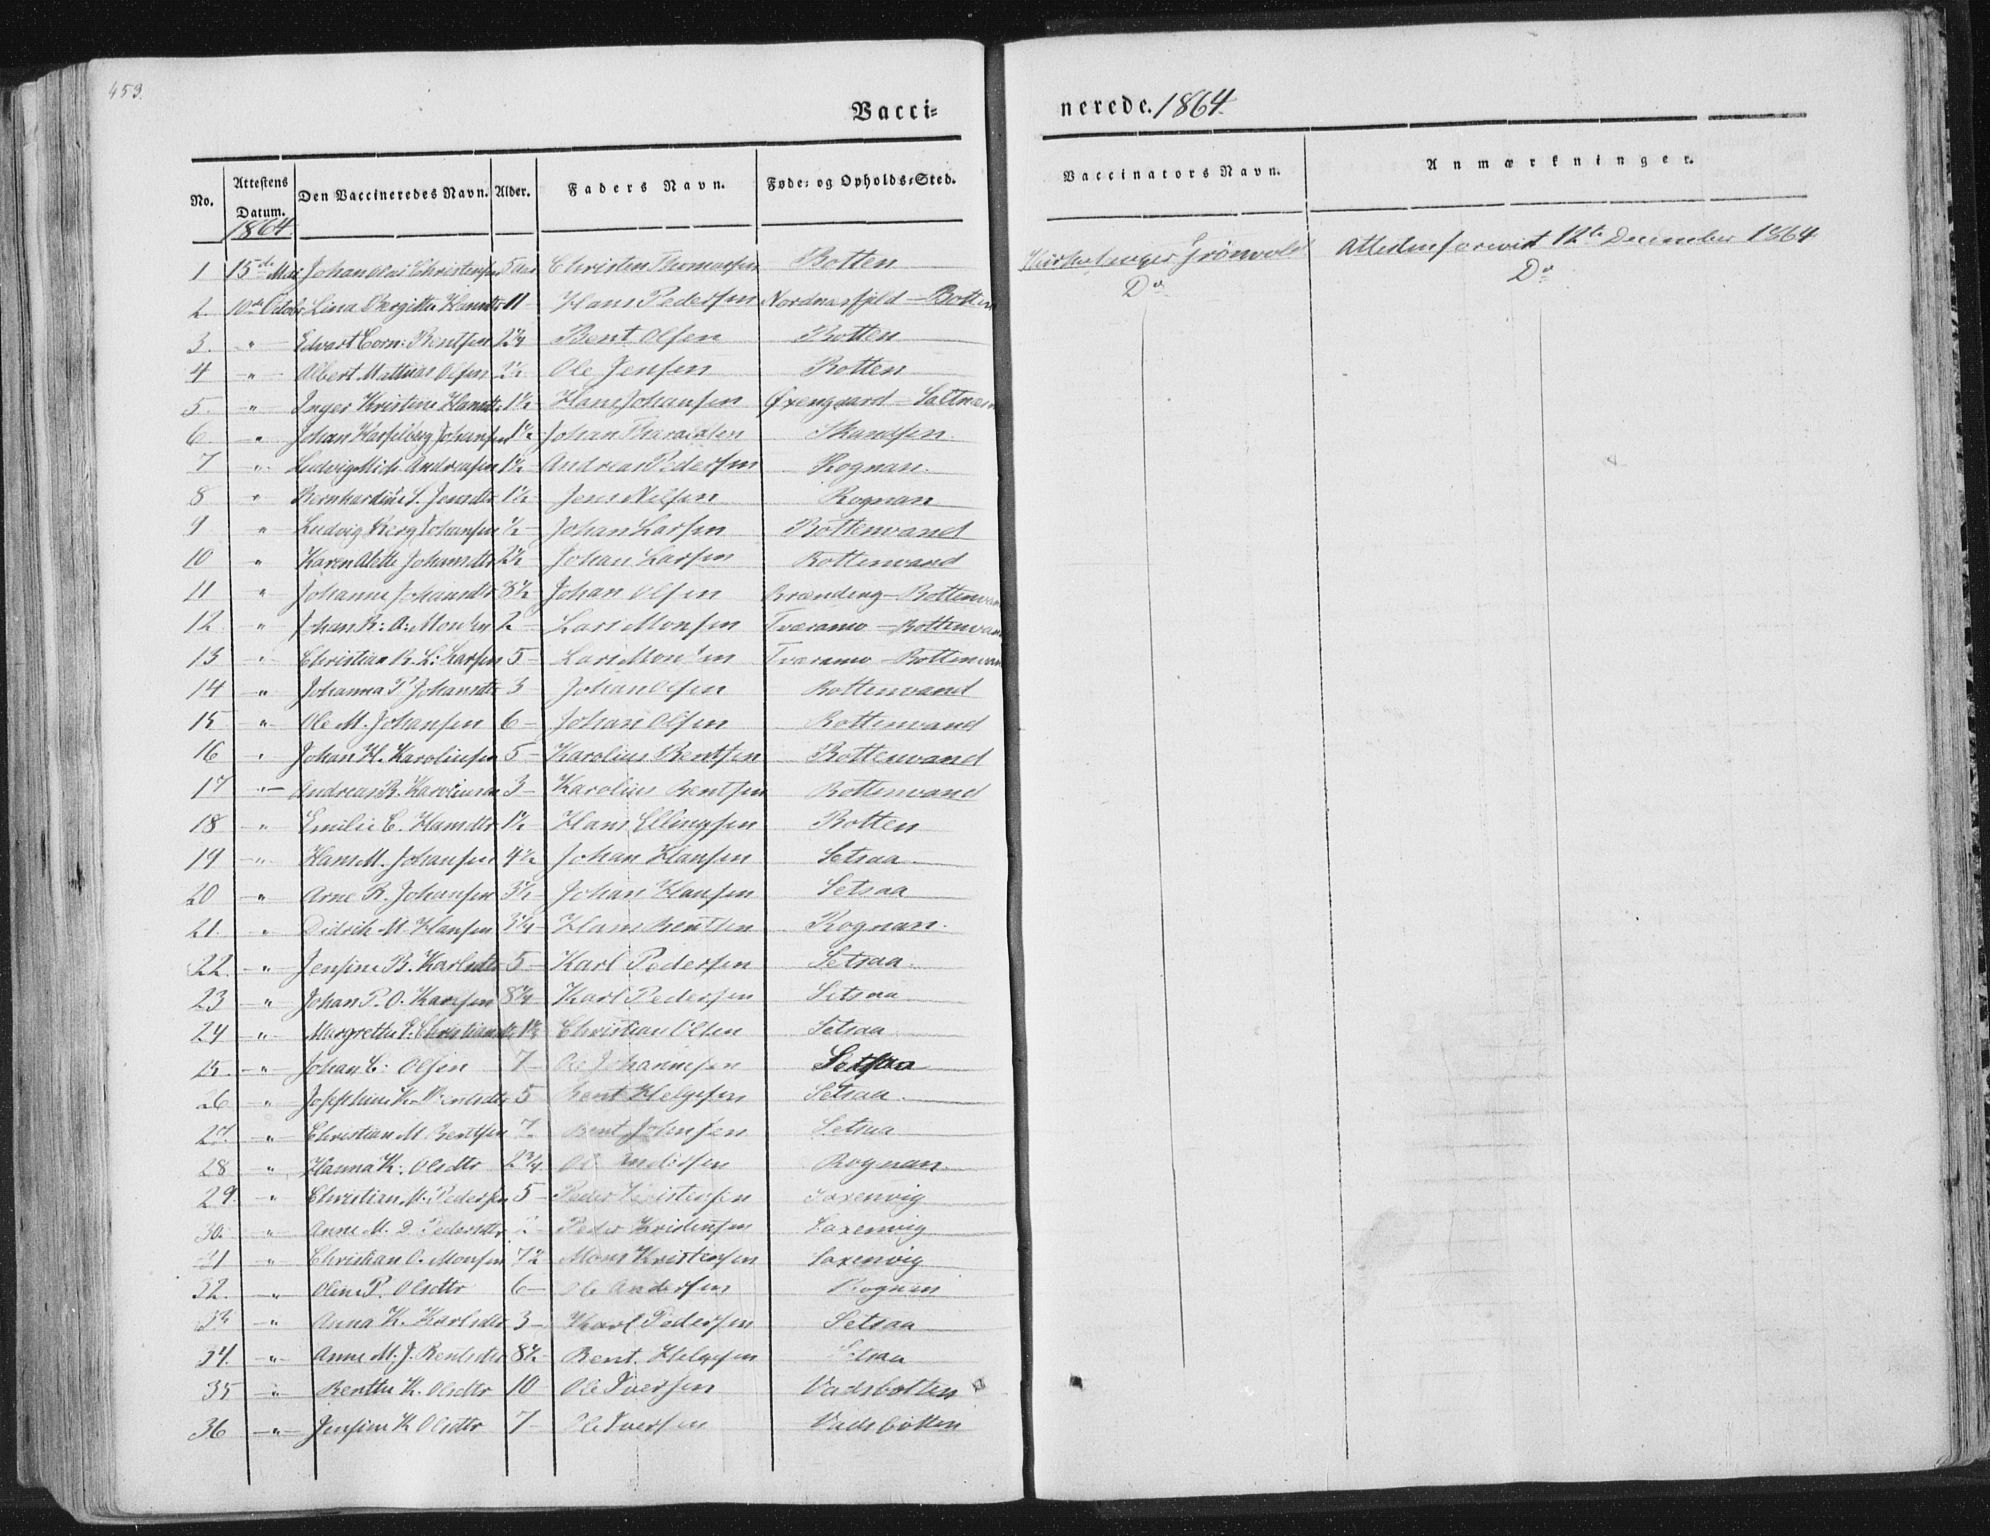 453.
Vacci- nerede. 1864.
No. Attestens Datum. Den Vaccineredes Navn. Alder. Faders Navn. Føde- og Opholds-Sted. Vaccinators Navn. Anmærkninger.
1864.
1 15de Mai Johan Christensen 5 Aar Christen Thomassen Botten Grönvold 12te December 1864
2. 10de Octobr Lina Birgitte Hansdtr 11 Hans Pedersen Nordnæsfjeld - Botten Do Do
3. " Edvart Corn: Bentsen 2¼ Bent Olsen Botten
4 " Albert Mathias Olsen 2½ Ole Jensen Botten
5. " Inger Kristine Hansdtr 1½ Hans Johansen Øxengaard - Saltnæs
6. " Johan Hasselberg Johansen 1½ Johan Skandsen
7 " Ludvig Andreasen 1½ Andreas Pedersen Rognan.
8 " Bernhardine S. Jensdtr 1½ Jens Nilsen Rognan
9 " Ludvig Berg Johansen ½ Johan Larsen Bottenvand
10 " Karen Alette Johansdtr 2½ Johan Larsen Bottenvand
11 " Johanne Johansdtr 8½ Johan Olsen Bræneng - Bottenvand
12 " Johan R: A: Monsen 2 - Lars Monsen Tværamo - Bottenvand
13 " Christian R. L: Larsen 5 - Lars Monsen Tværamo - Bottenvand
14 " Johanna P Johansdtr 3 Johan Olsen Bottenvand
15 " Ole M. Johansen 6 - Johan Olsen Bottenvand
16 " Johan H. Karoliusen 5 - Karolius Bentsen Bottenvand
17 " Andreas B. Karoliusen 3 - Karolius Bentsen Bottenvand
18 " Emilie C. Hansdtr 1½ Hans Ellingsen Botten
19 " Hans M. Johansen 4½ Johan Hansen Setsaa
20 " Arne R. Johansen 3½ Johan Hansen Setsaa
21. " Didrik M. Hansen 3¼ Hans Bentsen Rognan.
22. " Jensine B. Karlsdtr 5 - Karl Pedersen Setsaa
23 " Johan P. O. Karlsen 8¼ Karl Pedersen Setsaa
24 " Margrethe Christiansdtr 1½ Christian Olsen Setsaa
25. " Johan C: Olsen 7 - Ole Johannesen Setsaa
26 " Josephine K. Bentsdtr 5 Bent Helgesen Setsaa
27. " Christian M Bentsen 7 Bent Johnsen Setsaa
28 " Hanna K. Olsdtr 2¾ Ole Andersen Rognan.
29. " Christian M. Pedersen 5 - Peder Kristensen Saxenvig
30. " Anne M. D. Pedersdtr 2 - Peder Kristensen Saxenvig
31 " Christian O. Monsen 7½ Mons Kristensen Saxenvig
32. " Oline P. Olsdtr 6 - Ole Andersen Rognan
33 " Anna K. Karlsdtr 3 - Karl Pedersen Setsaa
34. " Anne M. J. Bentsdtr 8½ Bent. Helgesen Setsaa
35 " Benthe K. Olsdtr 10 Ole Iversen Vadsbotten
36 " Jensine K Olsdtr 7 - Ole Iversen Vadsbotten